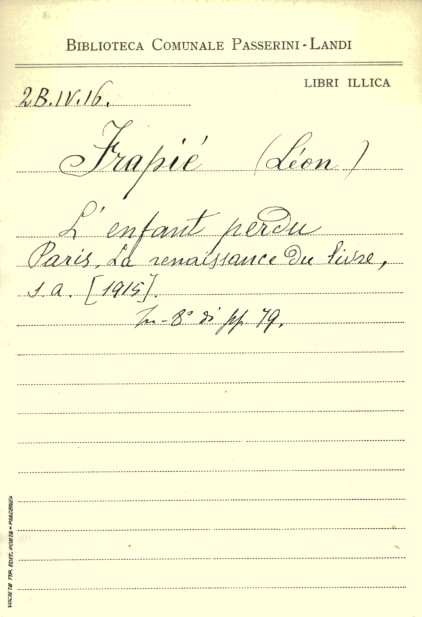 BIBLIOTECA COMUNALE PASSERINI-LANDI
LIBRI ILLICA
2B.IV.16.
Frapié (Léon)
L'enfant perdu
Paris, La renaissance du livre,
s.a. [1915].
In-8° di pp 79.
SOCIETÀ TIP. EDIT. PORTA - PIACENZA